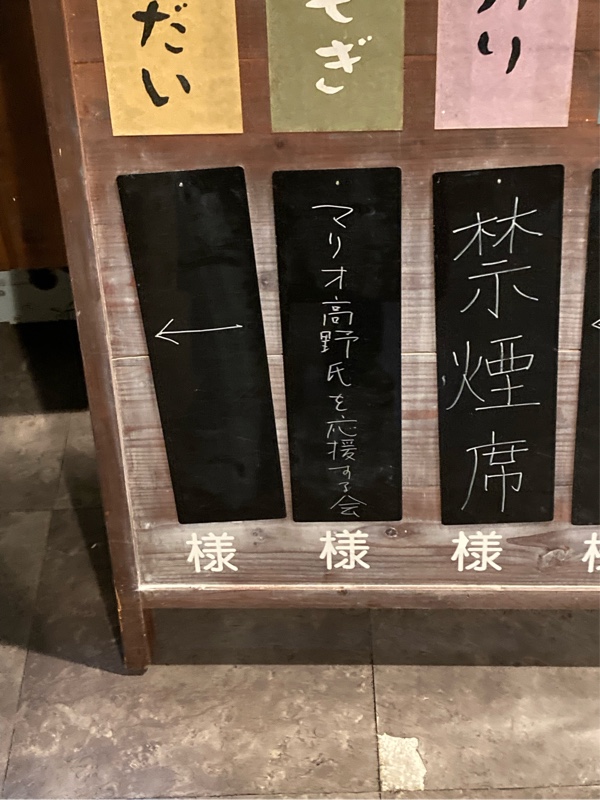 だい
ぎ
り
禁煙席
様
マリオ高野氏を応援する会
様
←
様